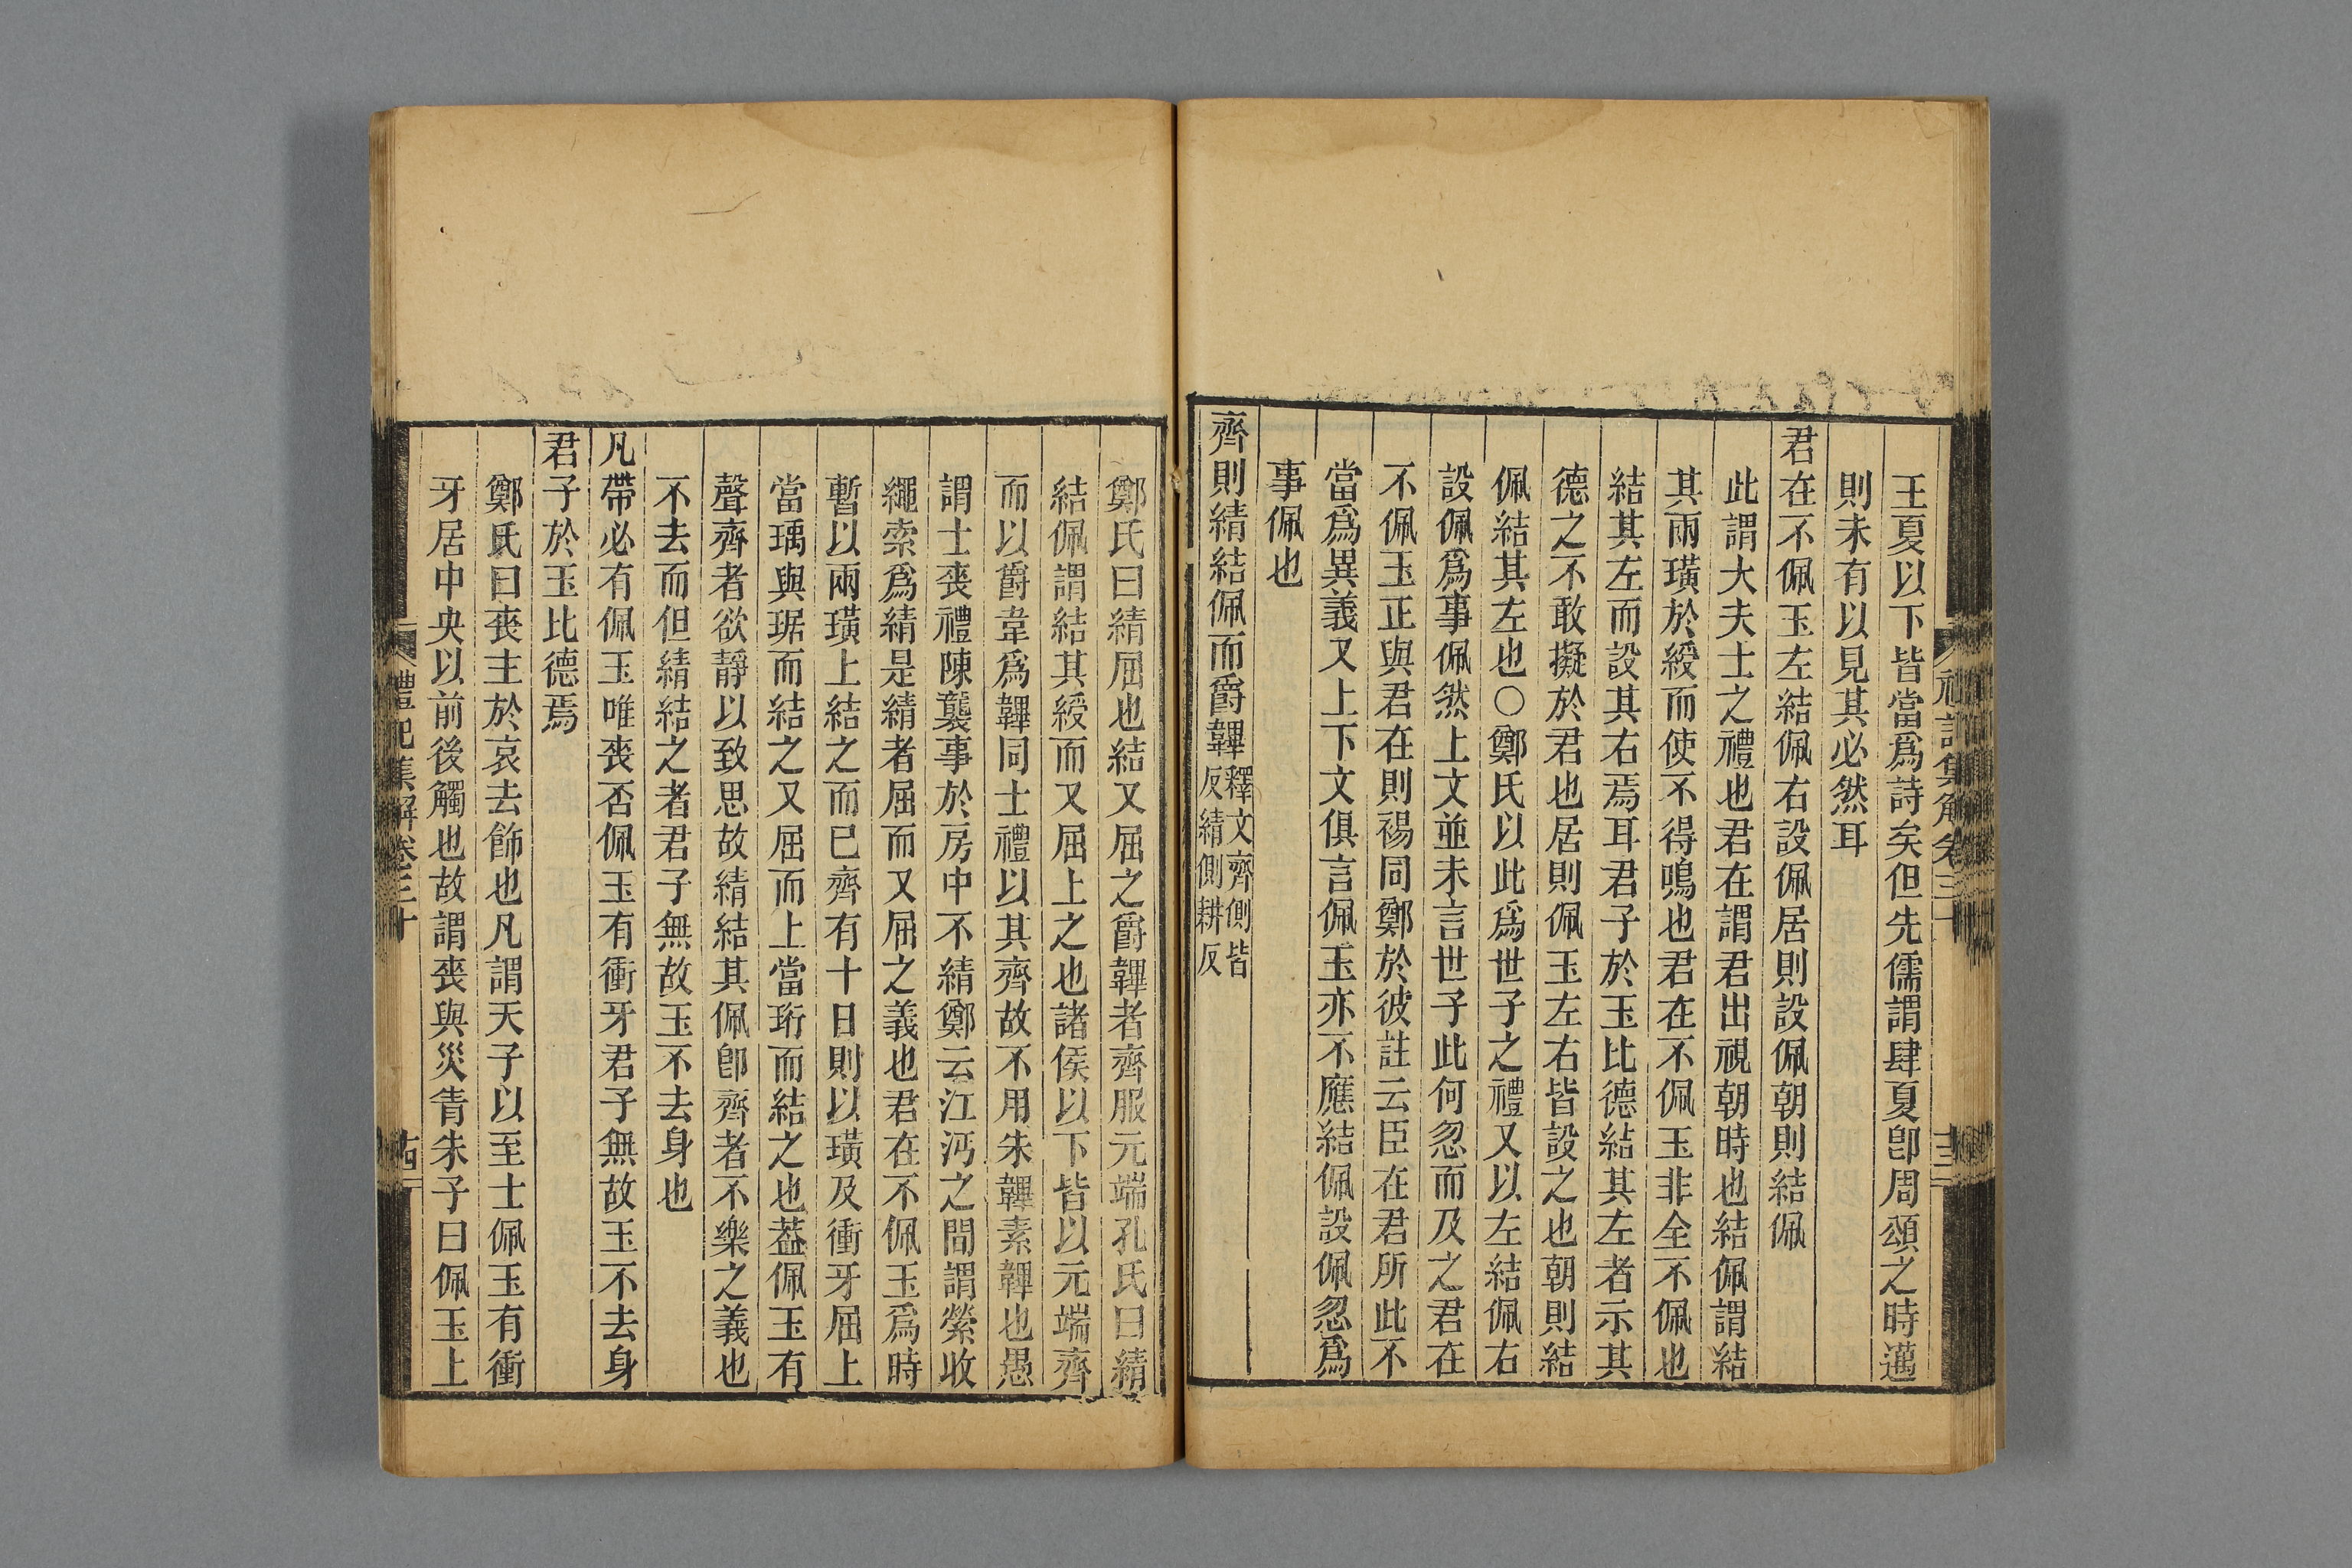 王夏以下皆當爲詩矣但先儒謂肆夏卽周頌之時邁
則未有以見其必然耳
君在不佩玉左結佩右設佩居則設佩朝則結佩
此謂大夫士之禮也君在謂君出視朝時也結佩謂結
其兩璜於綬而使不得鳴也君在不佩玉非全不佩也
結其左而設其右焉耳君子於玉比德結其左者示其
德之不敢擬於君也居則佩玉左右皆設之也朝則結
佩結其左也○鄭氏以此爲世子之禮又以左結佩右
設佩爲事佩然上文並未言世子此何忽而及之君在
不佩玉正與君在則裼同鄭於彼註云臣在君所此不
當爲異義又上下文俱言佩玉亦不應結佩設佩忽爲
事佩也
齊則綪結佩而爵韠釋文齊側皆
反綪側耕反
鄭氏曰綪屈也結又屈之爵韠者齊服元端孔氏曰綪
結佩謂結其綬而又屈上之也諸侯以下皆以元端齊
而以爵韋爲韠同士禮以其齊故不用朱韠素韠也愚
謂士喪禮陳襲事於房中不綪鄭云江沔之間謂縈收
繩索爲綪是綪者屈而又屈之義也君在不佩玉爲時
暫以兩璜上結之而已齊有十日則以璜及衝牙屈上
當瑀與琚而結之又屈而上當珩而結之也葢佩玉有
聲齊者欲靜以致思故綪結其佩卽齊者不樂之義也
不去而但綪結之者君子無故玉不去身也
凡帶必有佩玉唯喪否佩玉有衝牙君子無故玉不去身
君子於玉比德焉
鄭氏曰喪主於哀去飾也凡謂天子以至士佩玉有衝
牙居中央以前後觸也故謂喪與災眚朱子曰佩玉上
禮記集解卷三十
十四